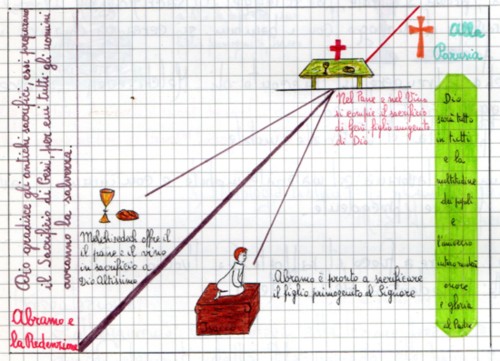 Dio gradisce gli antichi sacrifici, essi preparano
il Sacrificio di Gesù, per cui tutti gli uomini
avranno la salvezza.
Alla
Parusia
Nel Pane e nel Vino
si compie il sacrificio
di Gesù, figlio unigenito
di Dio
Dio
sarà tutto
in tutti
e la
moltitudine
dei popoli
e
l'universo
intero
onore
e gloria
al Padre
Melchisedech offre il
il pane e il vino
in sacrificio a
Dio Altissimo
Abramo è pronto a sacrificare
il figlio primogenito al Signore
Isacco
Abramo e
la Redenzione